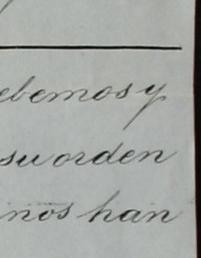 ebemos y
su orden
nos han